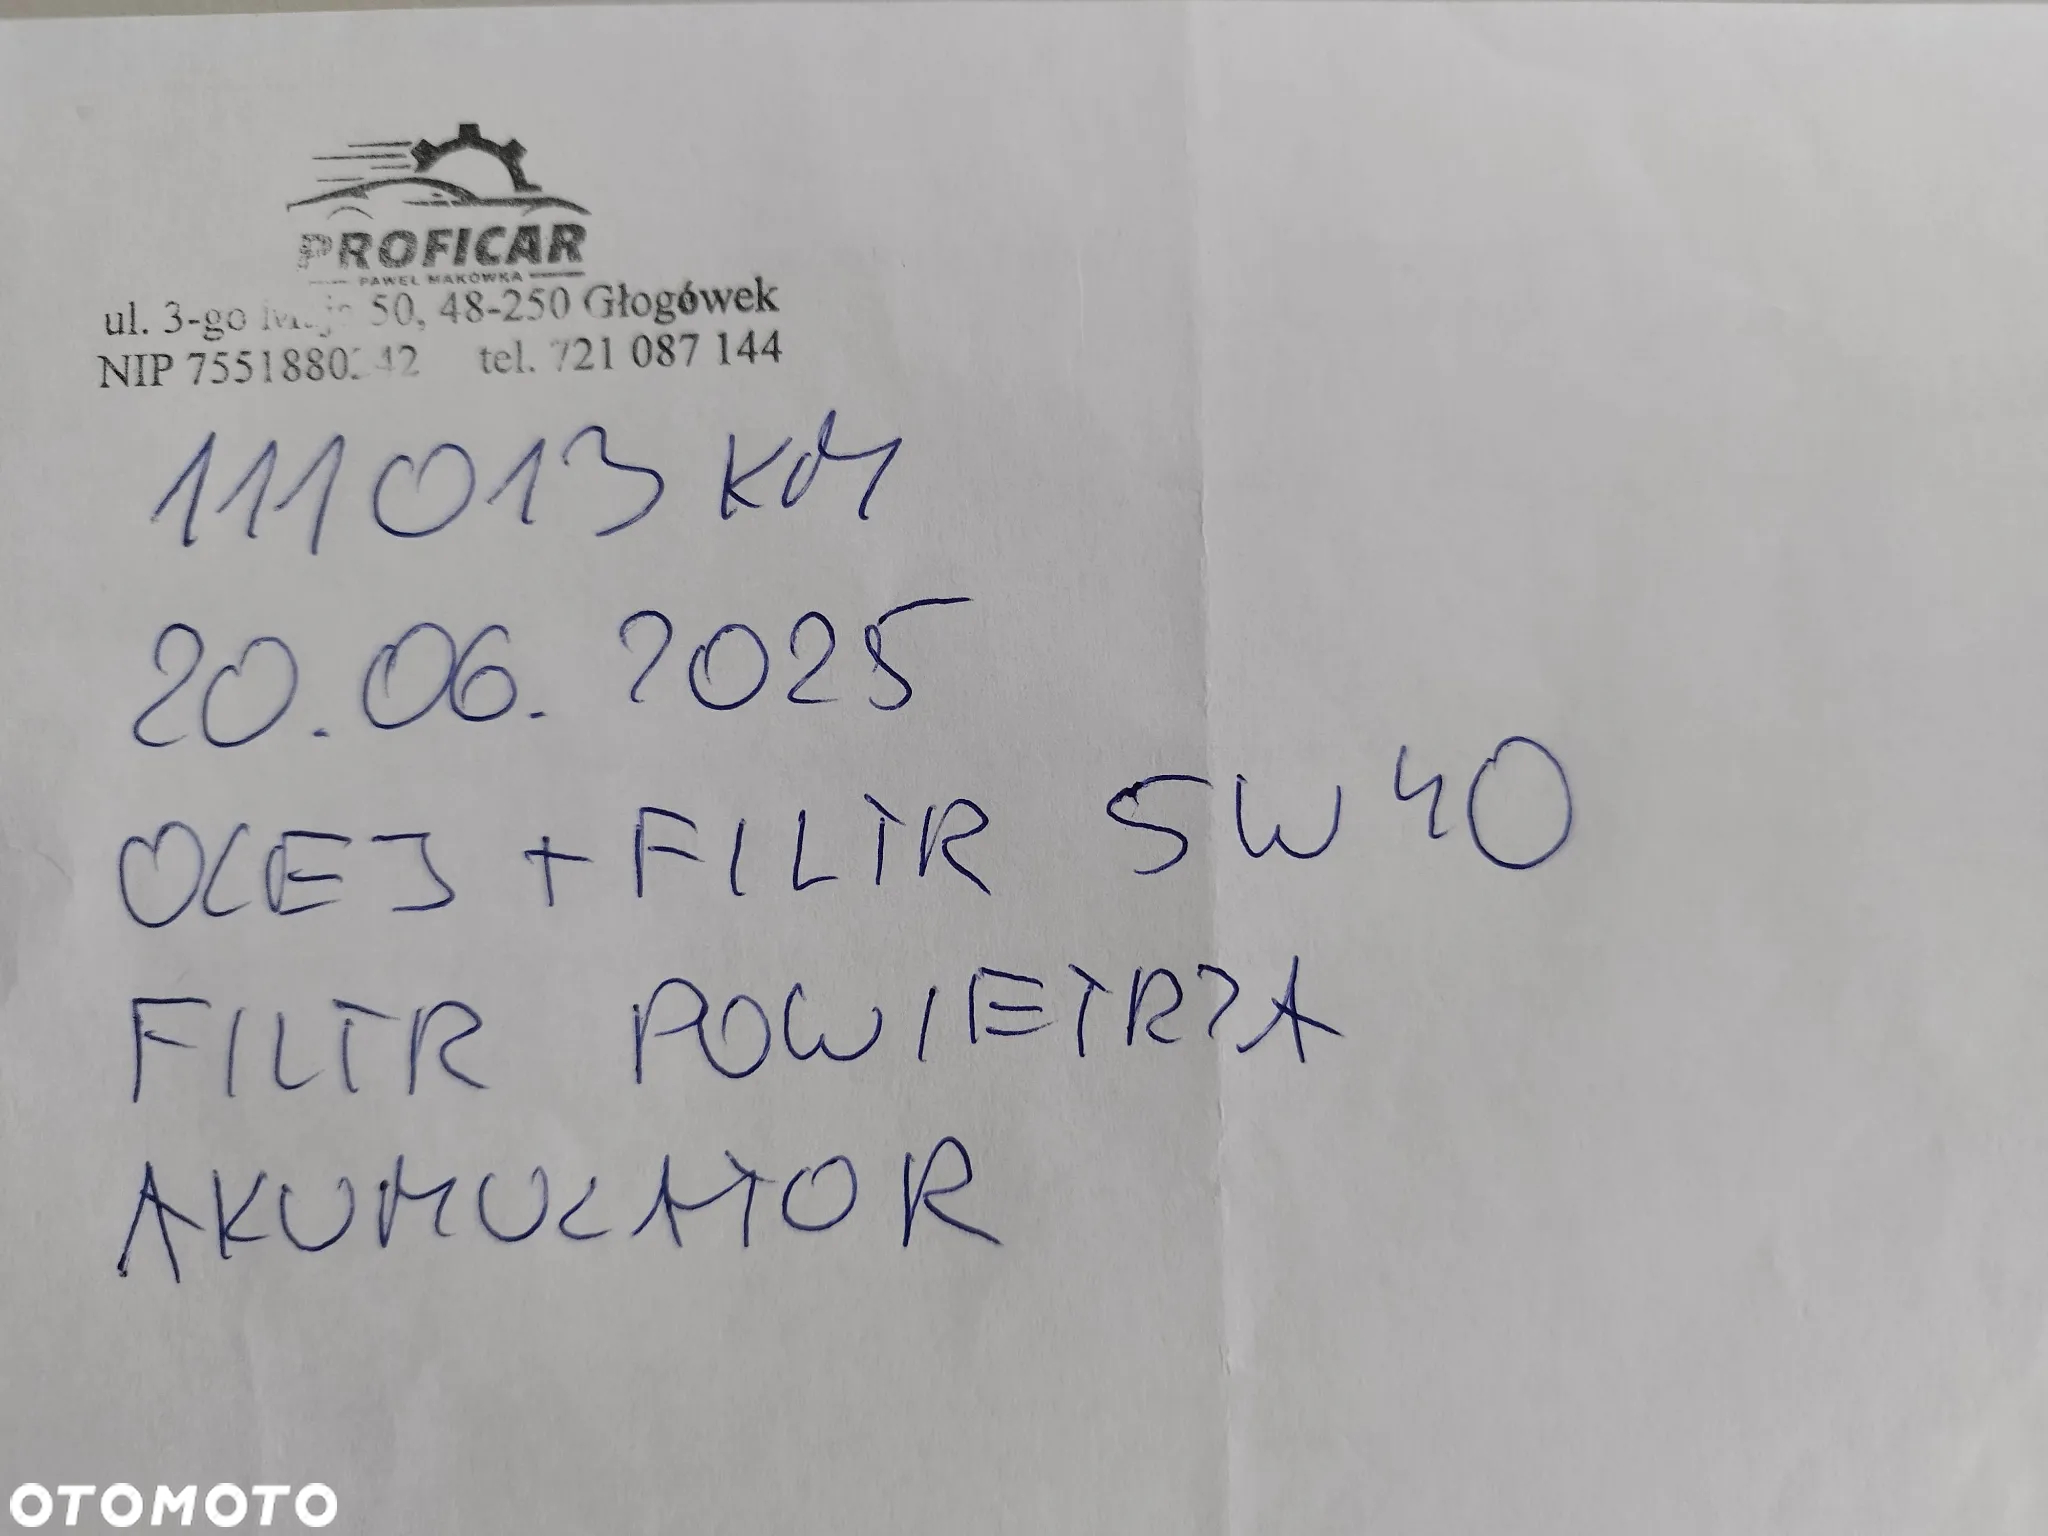 PROFICAR
PAWEŁ MAKÓWKA
ul. 3-go Maja 50, 48-250 Głogówek
NIP tel. 721 087 144
111013 KM
20.06.2025
OLEJ + FILTR 5W40
FILTR POWIETRZA
AKUMULATOR
OTOMOTO